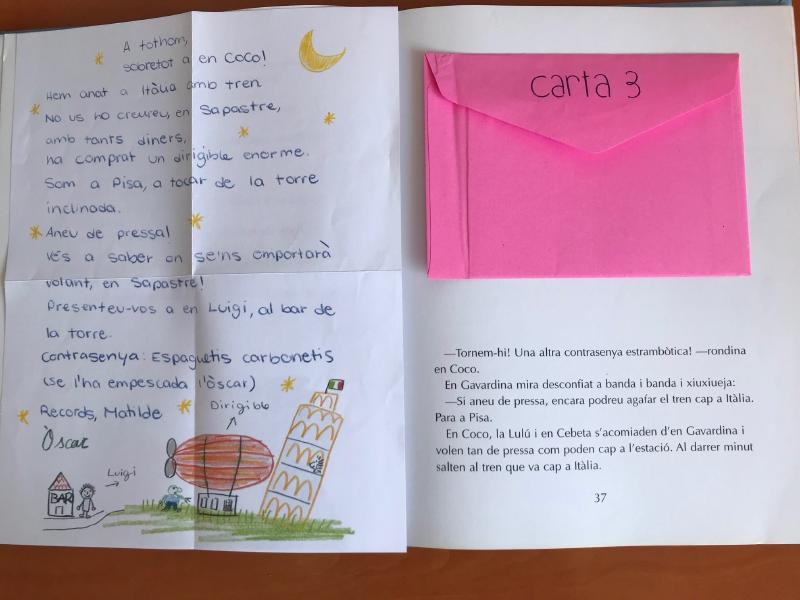 A tothom,
sobretot a en Coco!
Hem anat a Itàlia amb tren
No us ho creureu, en Sapastre,
amb tants diners,
ha comprat un dirigible enorme.
Som a Pisa, a tocar de la torre
inclinada.
Aneu de pressa!
Vés a saber on se'ns emportarà
volant, en Sapastre!
Presenteu-vos a en Luigi, al bar de
la torre.
Contrasenya: Espaguetis carbonetis
(se l'ha empescada l'Òscar)
Records, Matilde
Òscar
Dirigible
Luigi
BAR
carta 3
—Tornem-hi! Una altra contrasenya estrambòtica! —rondina
en Coco.
En Gavardina mira desconfiat a banda i banda i xiuxiueja:
—Si aneu de pressa, encara podreu agafar el tren cap a Itàlia.
Para a Pisa.
En Coco, la Lulú i en Cebeta s'acomiaden d'en Gavardina i
volen tan de pressa com poden cap a l'estació. Al darrer minut
salten al tren que va cap a Itàlia.
37